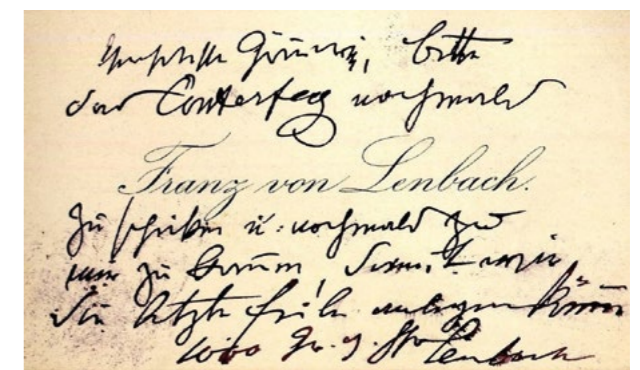 bitte
das Conterfey nochmals
Franz von Lenbach.
zu schicken u. nochmals zu
mir zu kommen, damit wir
die letzte Feile anlegen können
Lenbach